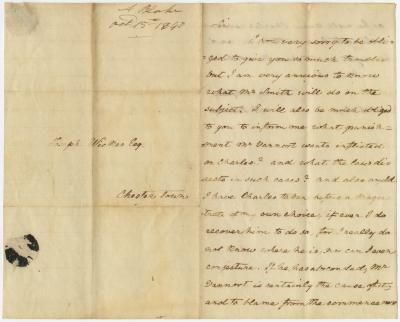 Oct 15th 1840
Joseph Wickes Esq.
Chester Town
Sir
I am very sorry to be obli-
ged to give you so much trouble
but I am very anxious to know
what Mr Smith will do on the
subject. I will also be much obliged
to you to inform me what punish-
ment Mr Vannort wants inflicted
on Charles? and what the law di-
rects in such cases? and also could
I have Charles taken before a Magis-
trate of my own choice, if ever I do
recover him to do so, for I really do
not know where he is, nor can I even
conjecture. If he has absconded, Mr
Vannort is certainly the cause of it,
and to blame from the commence